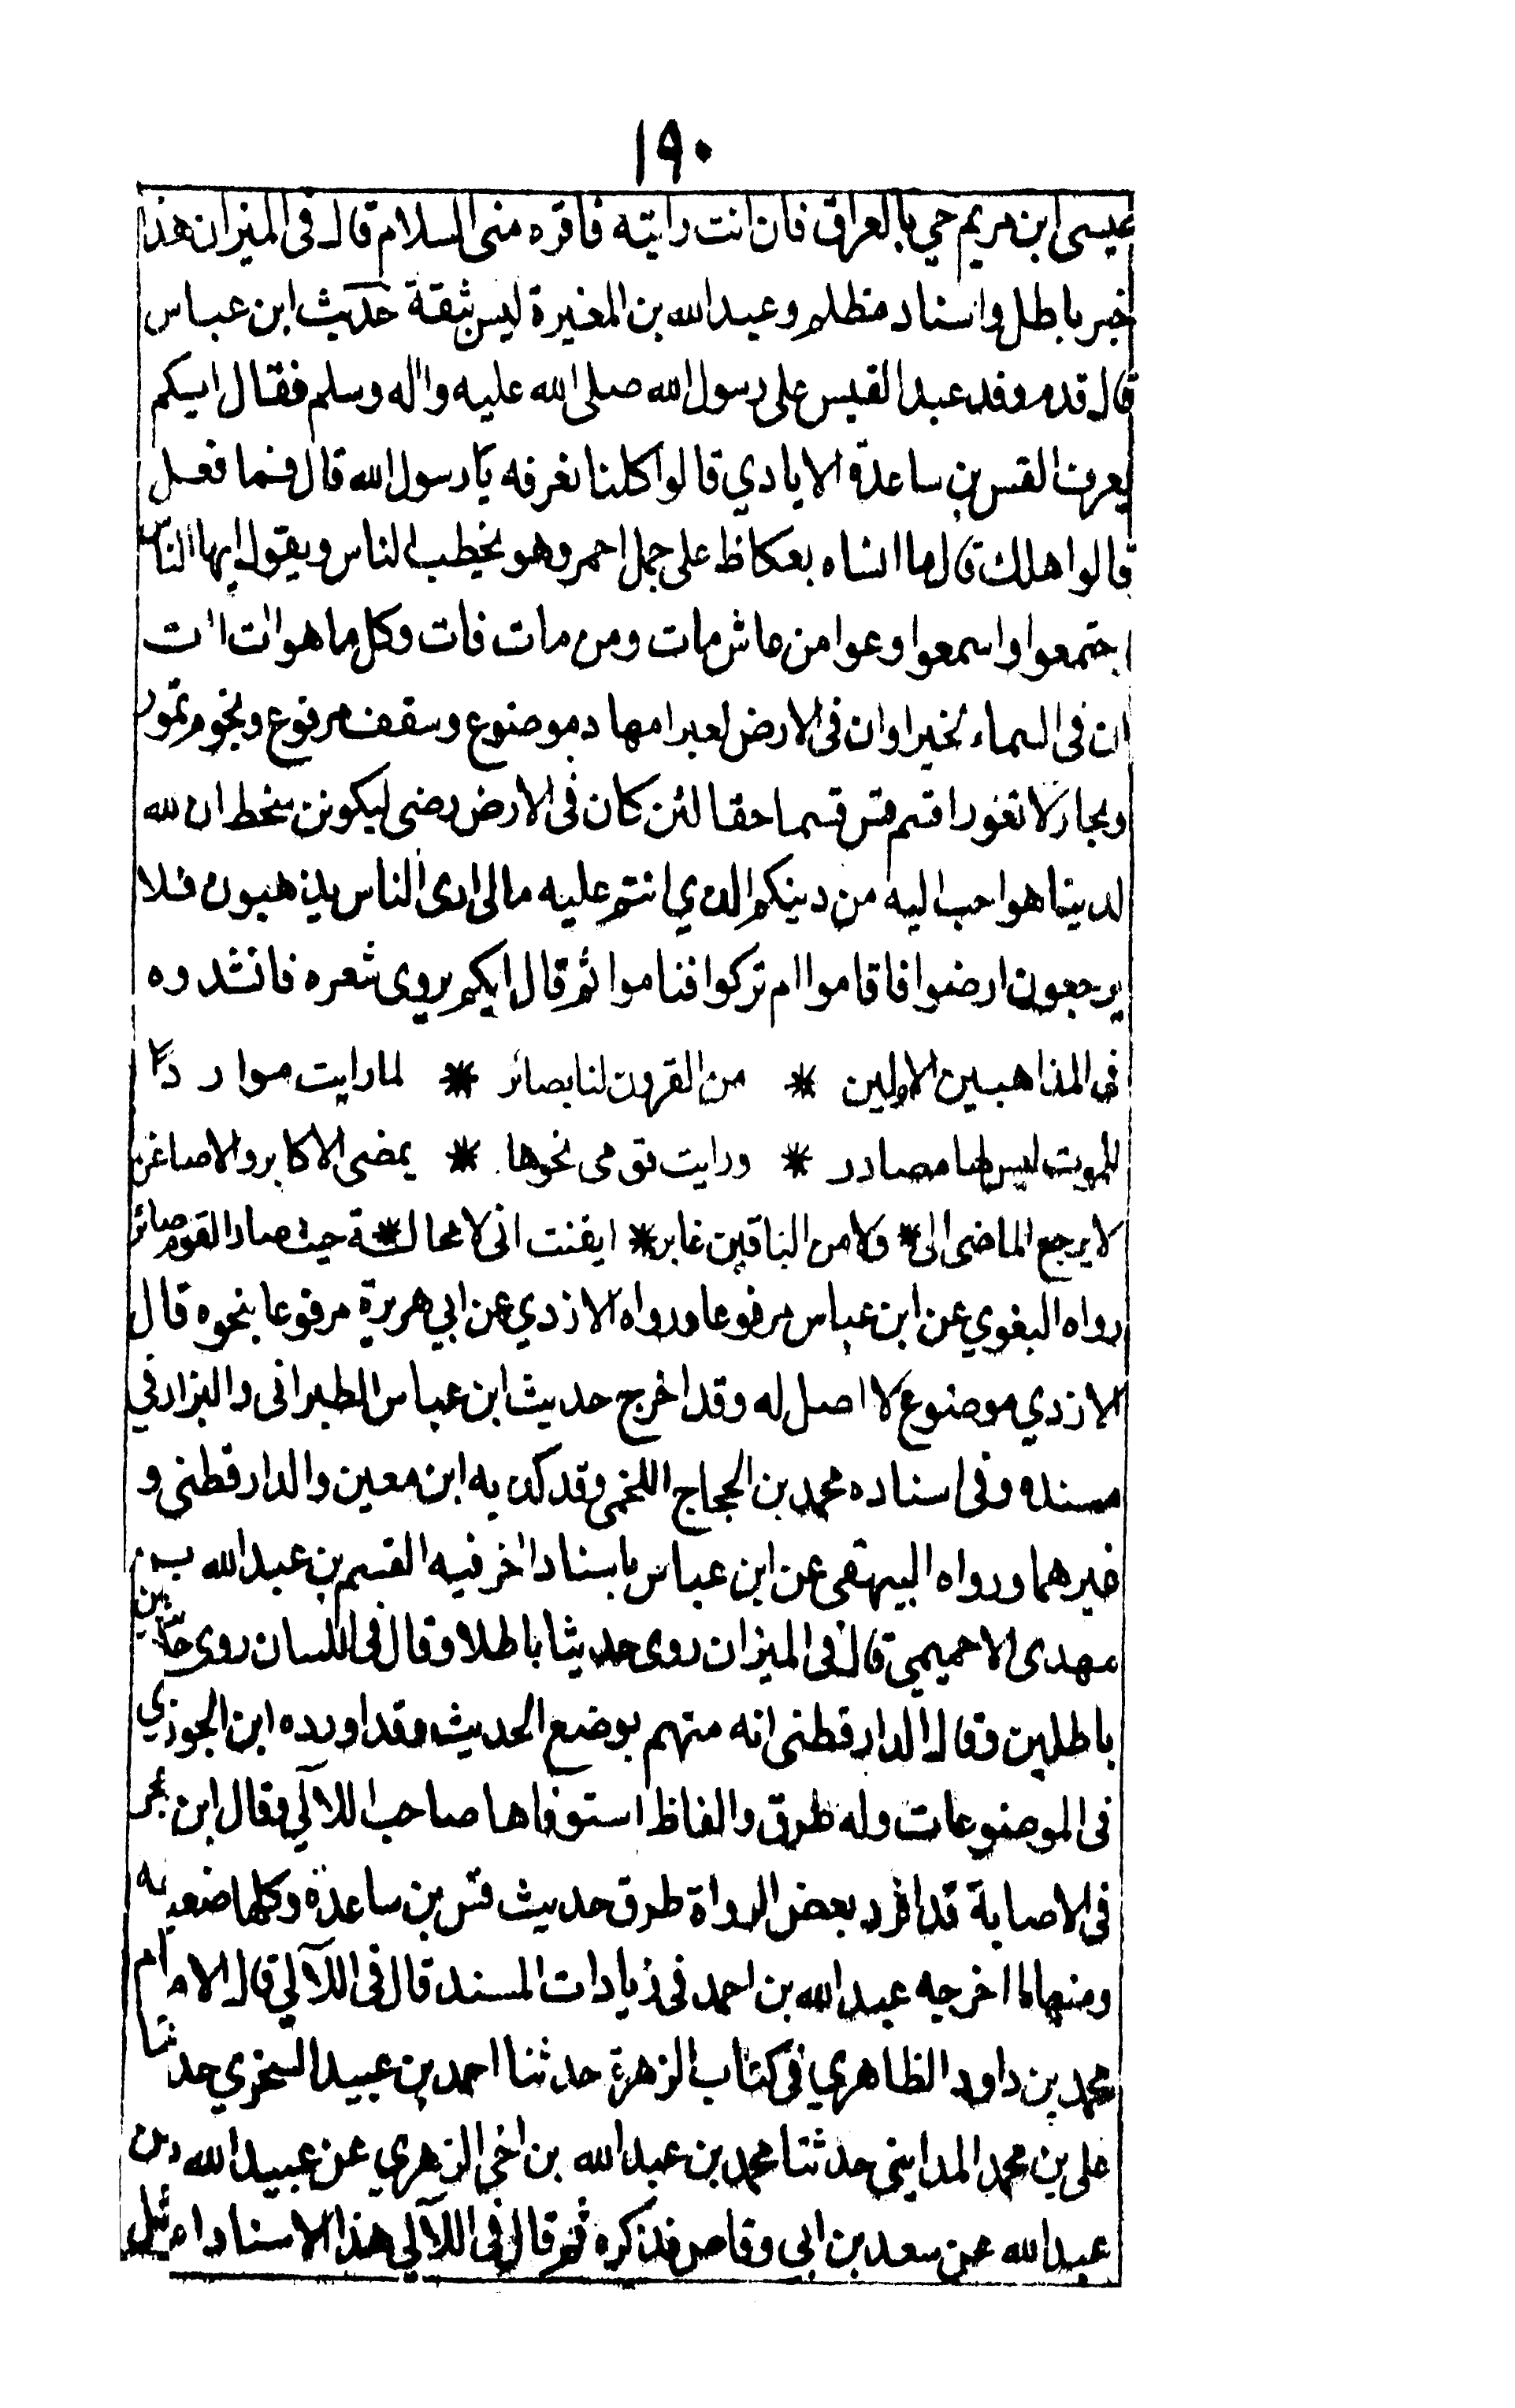 ١٩٠
عيسى ابن مريم حي بالعراق فان انت رايته فاقره منى السلام قال فى الميزان هذا
خبر باطل واسناد مظلم وعبد الله بن المغيرة ليس بثقة حديث ابن عباس
قال قدم وفد عبد القيس على رسول الله صلى الله عليه واله وسلم فقال ايكم
يعرف القس بن ساعدة الايادي قالوا كلنا نعرفه يا رسول الله قال فما فعل
قالوا هلك قال ما انساه بعكاظ على جمل احمر وهو يخطب الناس ويقول ايها الناس
اجتمعوا واسمعوا وعوا من عاش مات ومن مات فات وكل ما هو ات ات
ان فى السماء لخيرا وان فى الارض لعبرا مهاد موضوع وسقف مرفوع ونجوم تمور
وبحار لا تغور اقسم قس قسما حقا لئن كان فى الارض رضى ليكونن سخط ان لله
لدينا هو احب اليه من دينكم الذي انتم عليه مالى ارى الناس يذهبون فلا
يرجعون ارضوا فاقاموا ام تركوا فناموا ثم قال ايكم يروى شعره فانشدوه
فى الذاهبين الاولين * من القرون لنا بصائر * لما رايت مواردًا
للموت ليس لها مصادر * ورايت قومى نحوها * يمضى الاكابر والاصاغر
لا يرجع الماضى الى * ولا من الباقين غابر * ايقنت انى لا محالـ * ـة حيث صار القوم صائر
رواه البغوي عن ابن عباس مرفوعا ورواه الازدي عن ابي هريرة مرفوعا بنحوه قال
الازدي موضوع لا اصل له وقد اخرج حديث ابن عباس الطبرانى والبزار في
مسنده وفى اسناده محمد بن الحجاج اللخمى وقد كذبه ابن معين والدارقطنى و
غيرهما ورواه البيهقى عن ابن عباس باسناد اخر فيه القسم بن عبد الله بن
مهدى الاخميمي قال فى الميزان روى حديثا باطلا وقال فى اللسان روى حديثين
باطلين وقال الدارقطنى انه متهم بوضع الحديث وقد اورده ابن الجوزي
فى الموضوعات وله طرق والفاظ استوفاها صاحب اللآلي وقال ابن حجر
فى الاصابة قد افرد بعض الرواة طرق حديث قس بن ساعدة وكلها ضعيفه
ومنها ما اخرجه عبد الله بن احمد فى زيادات المسند قال فى اللآلي قال الامام
محمد بن داود الظاهري فى كتاب الزهرة حدثنا احمد بن عبيد النحوي حدثنا
على بن محمد المداينى حدثنا محمد بن عبد الله بن اخى الزهري عن عبيد الله بن
عبد الله عن سعد بن ابى وقاص فذكره ثم قال فى اللآلي هذا الاسناد امثل